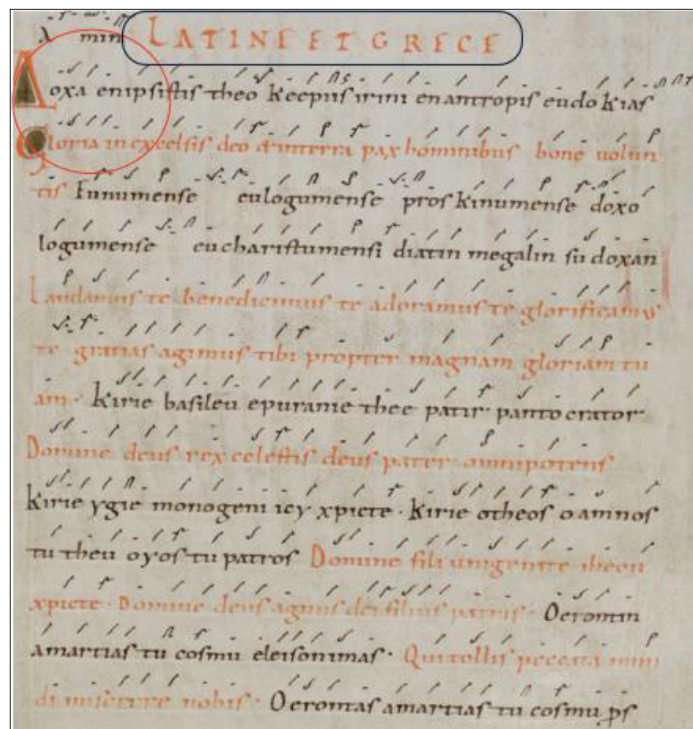 x min LATINE ET GRECE
Δoxa enipsistis theo keepiis irini enantropis eudo kias
Gloria in excelsis deo & interra pax hominibus bone uolun
tis Eunumense eulogumense proskinumense doxo
logumense eucharistumensi diatin megalin su doxan
Laudamus te benedicimus te adoramus te glorificamus
te gratias agimus tibi propter magnam gloriam tu
am· Kirie basileu epuranie thee patir pantocrator
Domine deus rex celestis deus pater omnipotens
Kirie ygie monogeni icy xpicte · Kirie otheos o amnos
tu theu oyos tu patros Domine fili unigenite ihecu
xpicte · Domine deus agnus dei filius patris · Oeromin
amartias tu cosmu eleisonimas · Qui tollis peccata mun
di miserere nobis · Oerontas amartias tu cosmu ps